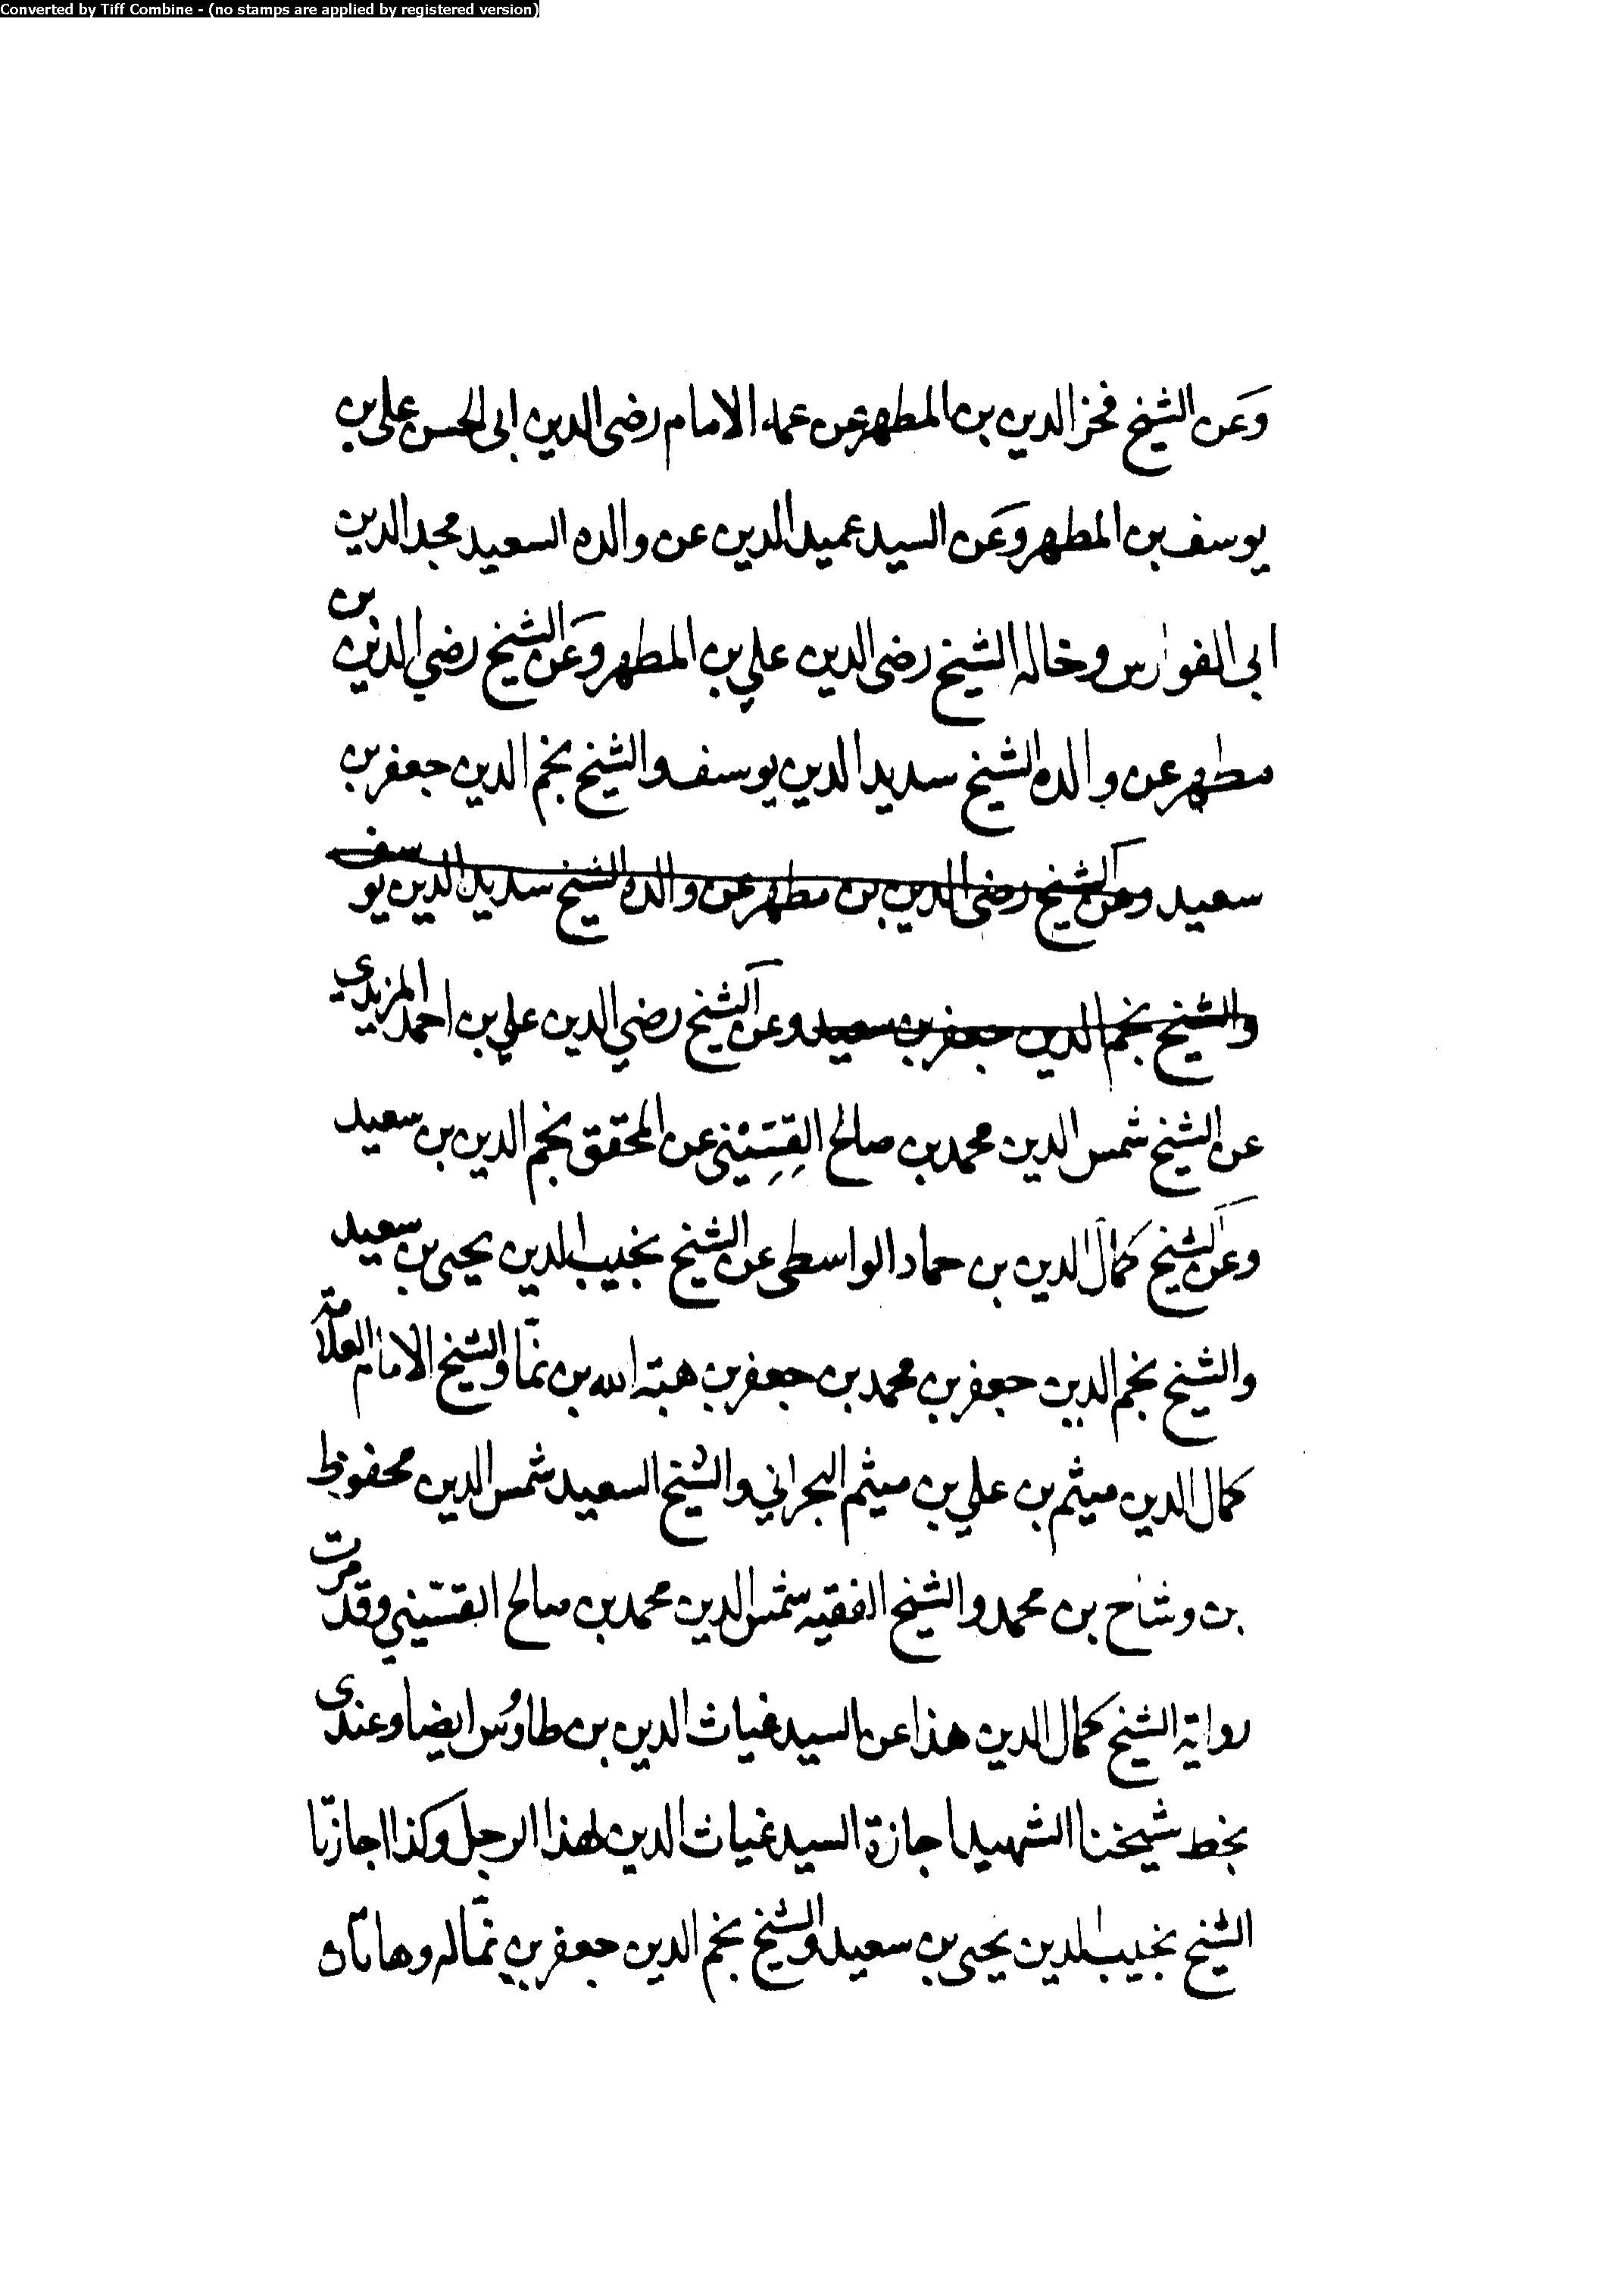 Converted by Tiff Combine - (no stamps are applied by registered version)
وعن الشيخ فخر الدين بن المطهر عن عمه الامام رضى الدين ابى الحسن على بن
يوسف بن المطهر وعن السيد عميد الدين عن والده السعيد مجد الدين
ابى الفوارس وخاله الشيخ رضى الدين علي بن المطهر وعن الشيخ رضي الدين بن
مطهر عن والده الشيخ سديد الدين يوسف والشيخ نجم الدين جعفر بن
سعيد وعن الشيخ رضى الدين بن مطهر عن والده الشيخ سديد الدين يوسف
والشيخ نجم الدين جعفر بن سعيد وعن الشيخ رضي الدين علي بن احمد المزيدي
عن الشيخ شمس الدين محمد بن صالح القِسِّيْني عن المحقق نجم الدين بن سعيد
وعن الشيخ كمال الدين بن حماد الواسطى عن الشيخ نجيب الدين يحيى بن سعيد
والشيخ نجم الدين جعفر بن محمد بن جعفر بن هبة الله بن نمّا والشيخ الامام العلامة
كمال الدين ميثم بن علي بن ميثم البحراني والشيخ السعيد شمس الدين محفوظ
بن وشاح بن محمد والشيخ الفقيه شمس الدين محمد بن صالح القسّيني وقد مرت
رواية الشيخ كمال الدين هذا عن السيد غياث الدين بن طاوُس ايضا وعندى
بخط شيخنا الشهيد اجازة السيد غياث الدين لهذا الرجل وكذا اجازتا
الشيخ نجيب الدين يحيى بن سعيد والشيخ نجم الدين جعفر بن نمّا له وهاتان